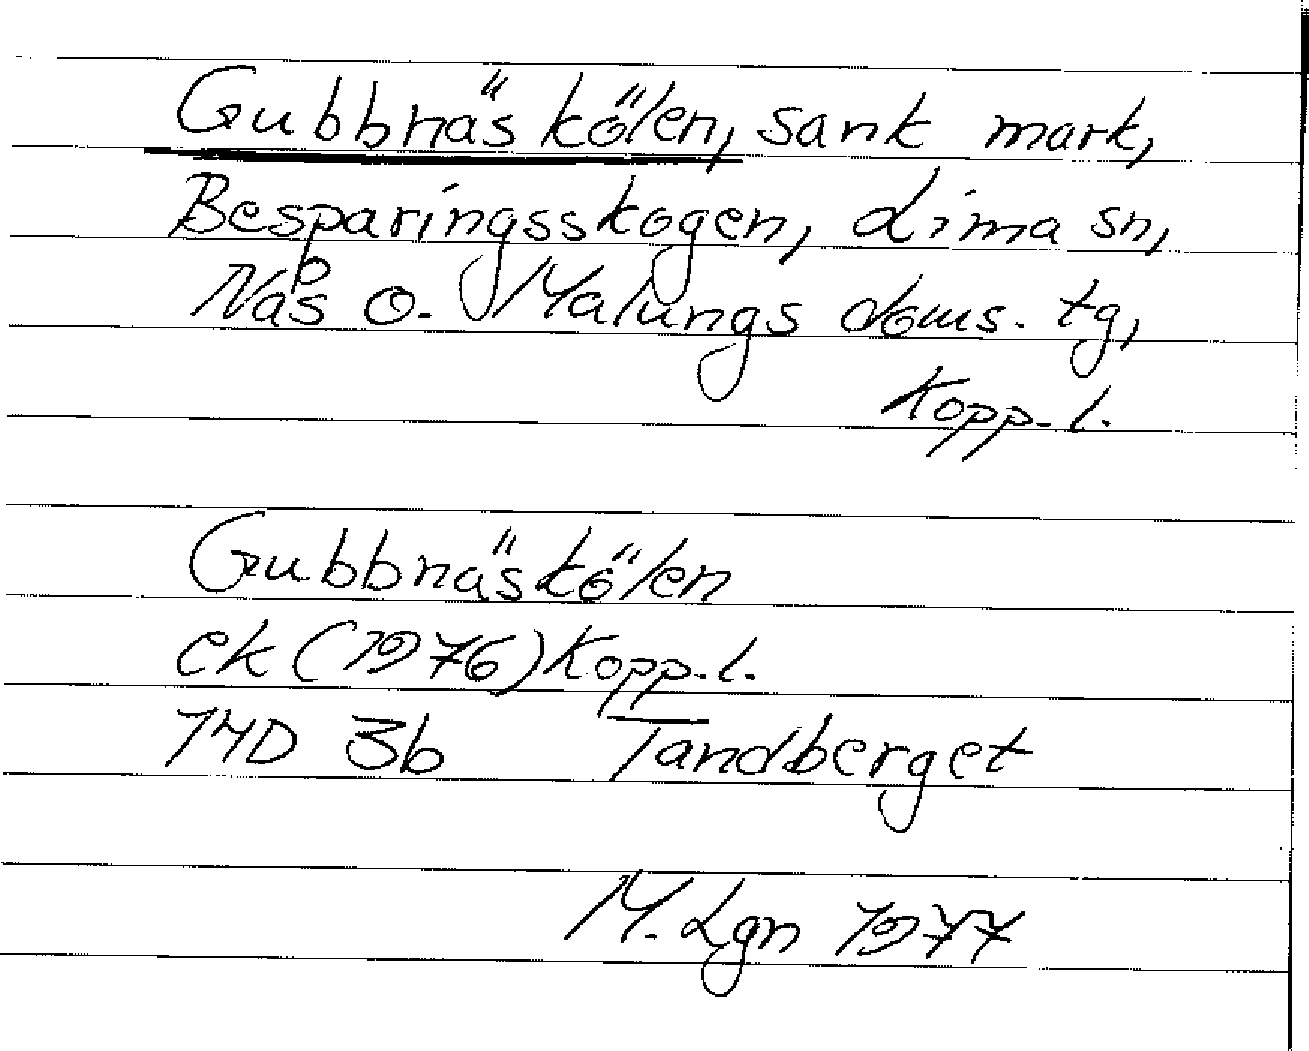 Gubbnäskölen, sank mark,
Besparingsskogen, Lima sn,
Nås o. Malungs doms. tg,
Kopp. l.
Gubbnäskölen
ek (1976) Kopp. l.
14D 3b Tandberget
M. Lgn 1977